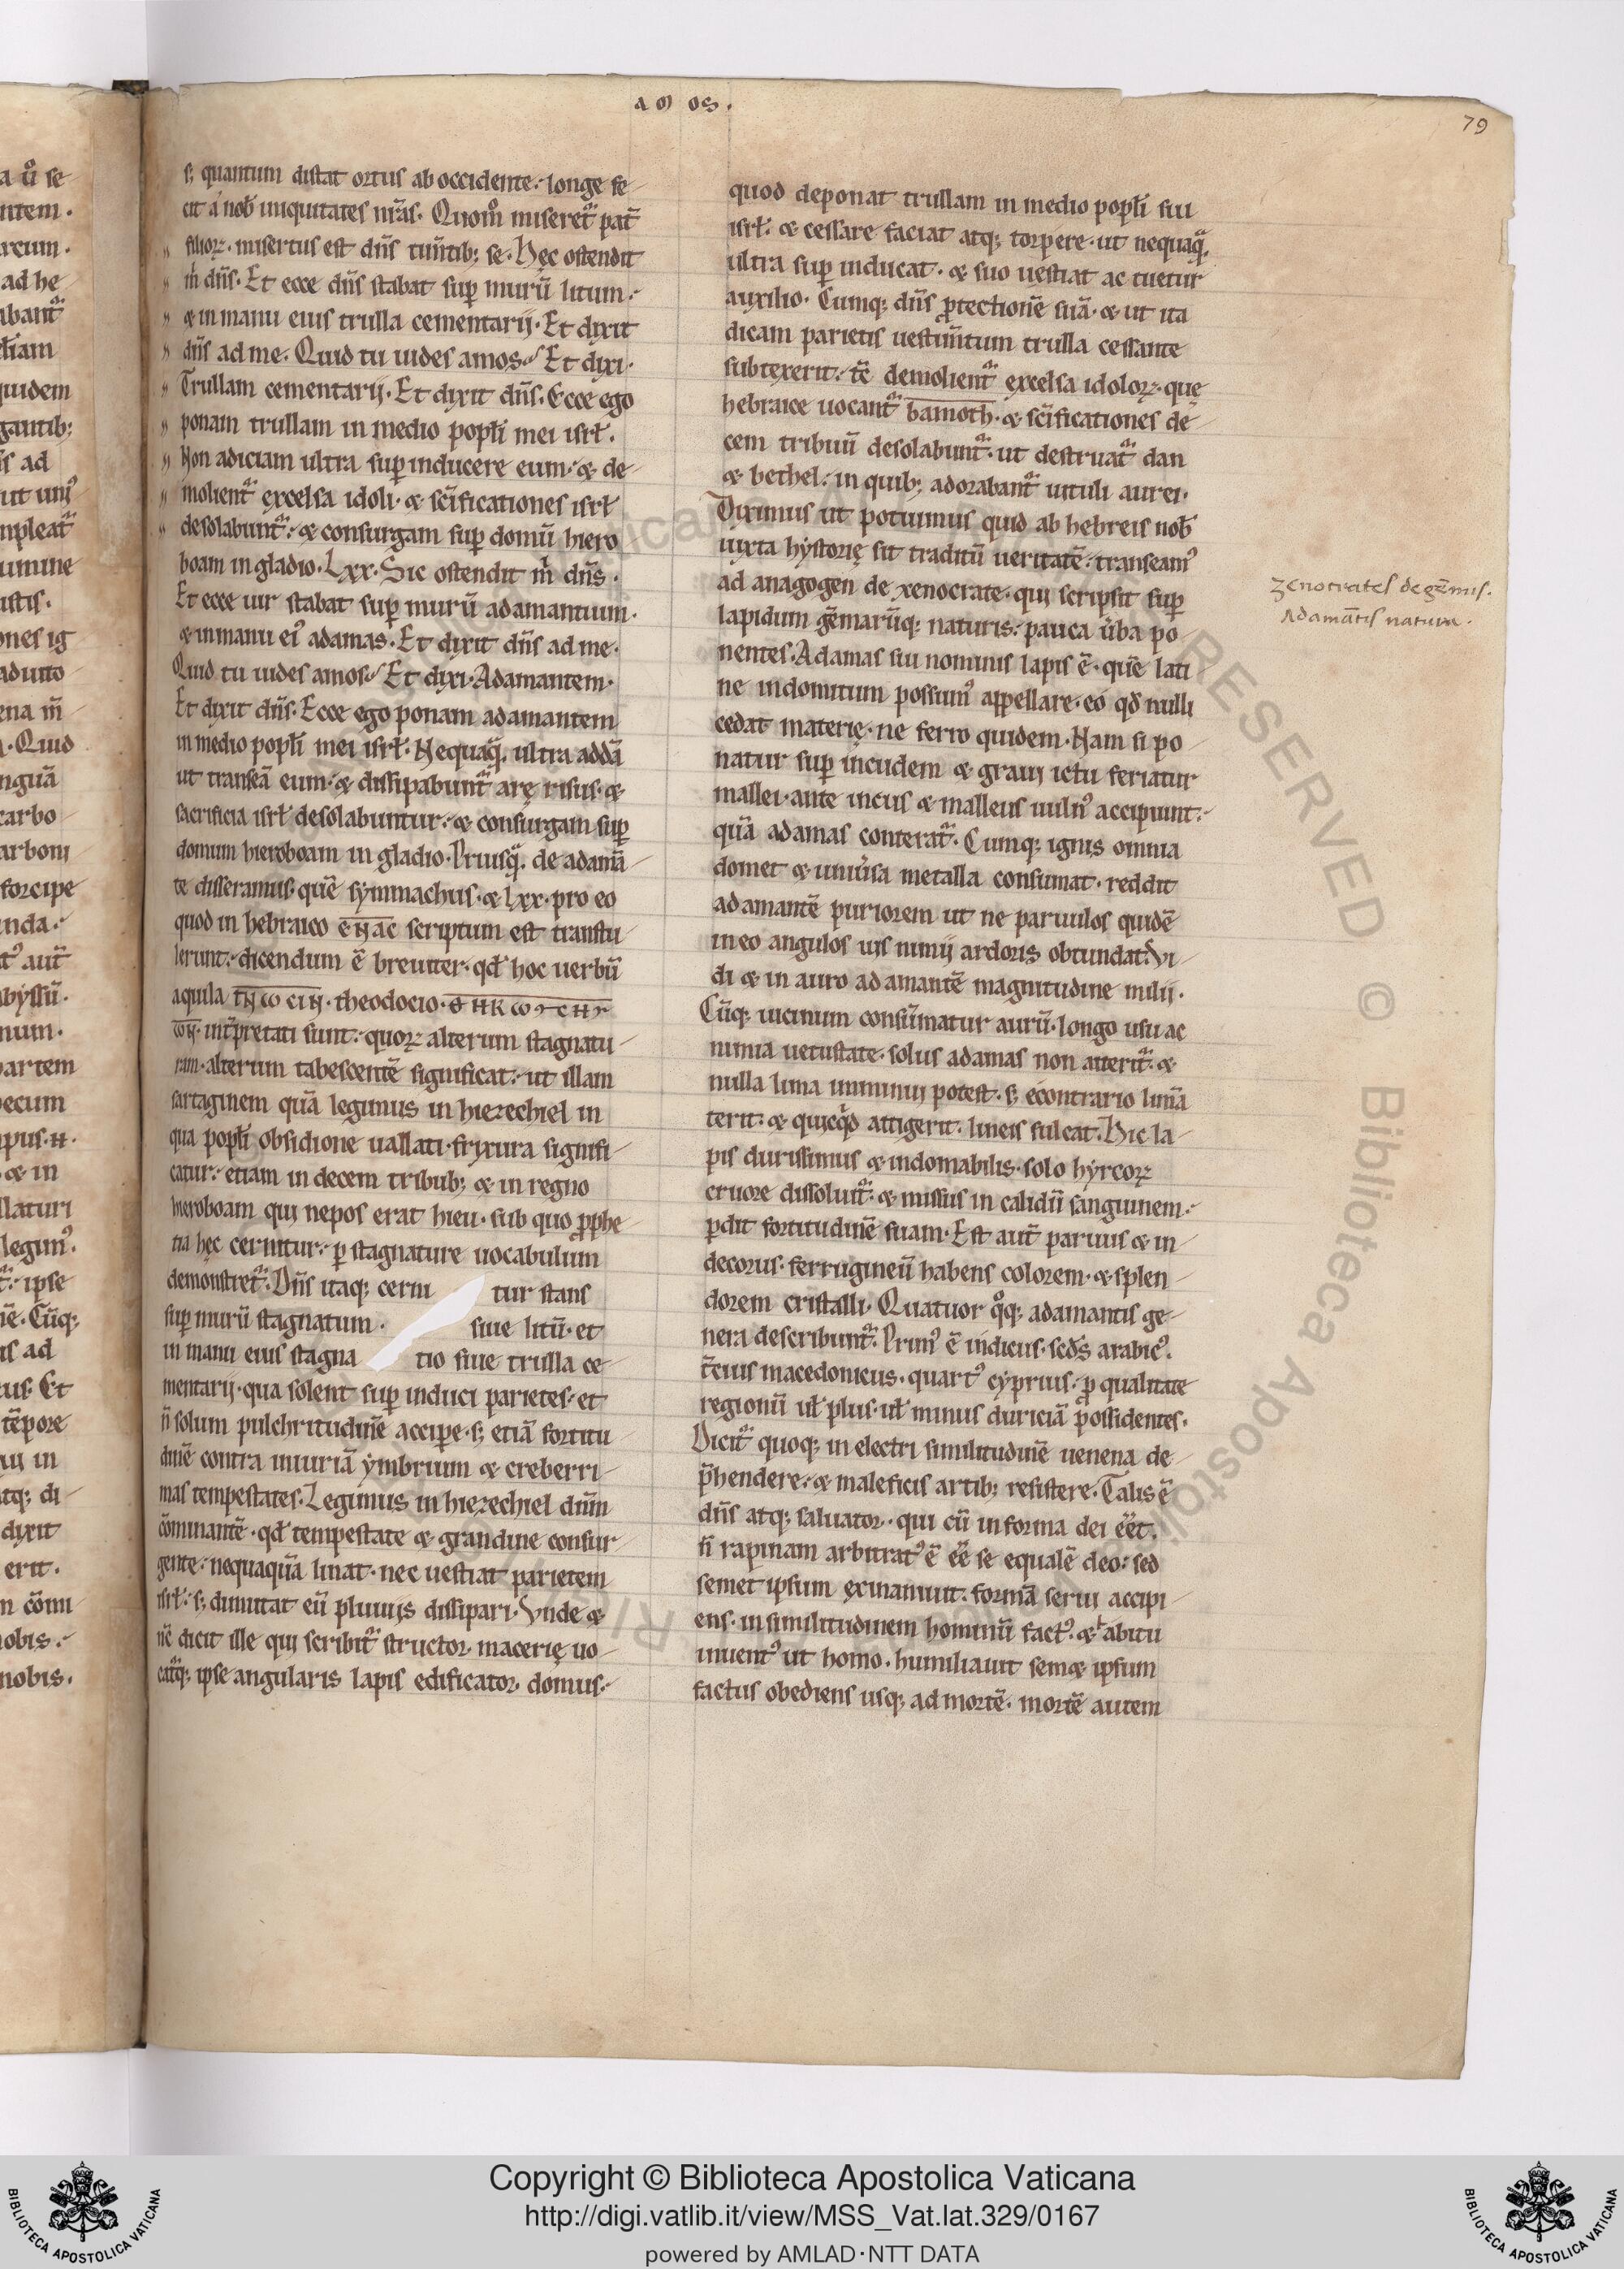 AMOS.
79
s; quantum distat ortus ab occidente: longe fe-
cit a nob̄ iniquitates nr̄as. Quom̊ miseret᷑ pat̄
filioꝝ. misertus est dn̄s tim̄tib; se. Hęc ostendit
m̄ dn̄s. Et ecce dn̄s stabat sup̄ murū litum:
& in manu eius trulla cementarij. Et dixit
dn̄s ad me. Quid tu uides amos? Et dixi.
Trullam cementarij. Et dixit dn̄s. Ecce ego
ponam trullam in medio popl̄i mei isrł.
Non adiciam ultra sup̄inducere eum: & de-
molient᷑ excelsa idoli. & sc̄ificationes isrł
desolabunt᷑: & consurgam sup̄ domū hiero
boam in gladio. Lxx. Sic ostendit m̄ dn̄s.
Et ecce uir stabat sup̄ murū adamantium.
& in manu ei᷒ adamas. Et dixit dn̄s ad me.
Quid tu uides amos? Et dixi. Adamantem.
Et dixit dn̄s. Ecce ego ponam adamantem
in medio popl̄i mei isrł. Nequaq̄. ultra addā
ut transeā eum: & dissipabunt᷑ arę risus. &
sacrificia isrł desolabuntur: & consurgam sup̄
domum hieroboam in gladio. Priusq̄. de adamā-
te disseramus. quē symmachus. & lxx. pro eo
quod in hebraico ENAC scriptum est transtu-
lerunt: dicendum ē breuiter. qđ hoc uerbū
aquila
theodocio.
int̄pretati sunt: quoꝝ alterum stagnatu-
ram. alterum tabescentē significat: ut illam
sartaginem quā legimus in hiezechiel in
qua popl̄i obsidione uallati. frixura signifi-
catur: etiam in decem tribub; & in regno
hieroboam qui nepos erat hieu. sub quo ꝓphe-
tia hęc cernitur: ꝑ stagnature uocabulum
demonstret᷑. Dn̄s itaq; cerni tur stans
sup̄ murū stagnatum. siue litū. et
in manu eius stagna tio siue trulla ce-
mentarij. qua solent sup̄ induci parietes. et
n̄ solum pulchritudinē accipe. s; etiā fortitu
dinē contra iniuriā ymbrium & creberri-
mas tempestates. Legimus in hiezechiel dn̄m
cōminantē. qđ tempestate & grandine consur-
gente: nequaquā linat. nec uestiat parietem
isrł: s; dimittat eū pluuijs dissipari. Vnde &
nē dicit ille qui scribit᷑ structor. macerię uo-
cat᷑q; ipse angularis lapis edificator. domus:
quod deponat trullam in medio popl̄i sui
isrł: & cessare faciat atq; torpere. ut nequaq̄.
ultra sup̄ inducat. & suo uestiat ac tuetur
auxilio. Cumq; dn̄s ꝓtectionē suā. & ut ita
dicam parietis uestim̄tum trulla cessante
subtexerit: tē demolient᷑ excelsa idoloꝝ. quę
hebraice uocant᷑ bamoth. & sc̄ificationes de-
cem tribuū desolabunt᷑. ut destruat᷑ dan
& bethel: in quib; adorabant᷑ uituli aurei.
Diximus ut potuimus quid ab hebreis nob̄
iuxta hystorię sit traditū ueritatē: transeam᷒
ad anagogen de xenocrate. qui scripsit sup̄
lapidum gēmarūq; naturis: pauca ūba po-
nentes. Adamas sui nominis lapis ē. quē lati
ne indomitum possum᷒ appellare. eo qđ nulli
cedat materię. ne ferro quidem. Nam si po-
natur sup̄ incudem & graui ictu feriatur
mallei. ante incus & malleus uuln᷒ accipiunt:
quā adamas conterat᷑. Cumq; ignis omnia
domet & uniūsa metalla consumat. reddit
adamantē puriorem ut ne paruulos quidē
in eo angulos uis nimij ardoris obtundat. Vi-
di & in auro adamantē magnitudine milij.
Cūq; uicinum consūmatur aurū. longo usu ac
nimia uetustate. solus adamas non atterit᷑. &
nulla lima imminui potest. s; econtrario limā
terit: & quicq̊d attigerit. lineis sulcat. Hic la-
pis durissimus & indomabilis. solo hyrcoꝝ
cruore dissoluit᷑. & missus in calidū sanguinem:
ꝑdit fortitudinē suam. Est aut̄ paruus & in-
decorus. ferrugineū habens colorem. & splen-
dorem cristalli. Quatuor q̊q; adamantis ge-
nera describunt᷑. Prim᷒ ē indicus. scđs arabic᷒.
t̄cius macedonicus. quart᷒ cyprius. ꝓ qualitate
regionū uł plus. uł minus duriciā possidentes.
Dicit᷑ quoq; in electri similitudinē uenena de-
p̄hendere: & maleficis artib; resistere. Talis ē
dn̄s atq; saluator. qui cū in forma dei eēt.
n̄ rapinam arbitrat᷒ ē eē se equalē deo: sed
semet ipsum exinaniuit. formā serui accipi-
ens. in similitudinem hominū fact᷒. & habitu
inuent᷒ ut homo. humiliauit sem& ipsum
factus obediens usq; ad mortē. mortē autem
Zenocrates de gēmis.
Adamātis natura.
Copyright © Biblioteca Apostolica Vaticana
http://digi.vatlib.it/view/MSS_Vat.lat.329/0167
powered by AMLAD·NTT DATA
BIBLIOTECA APOSTOLICA VATICANA
BIBLIOTECA APOSTOLICA VATICANA